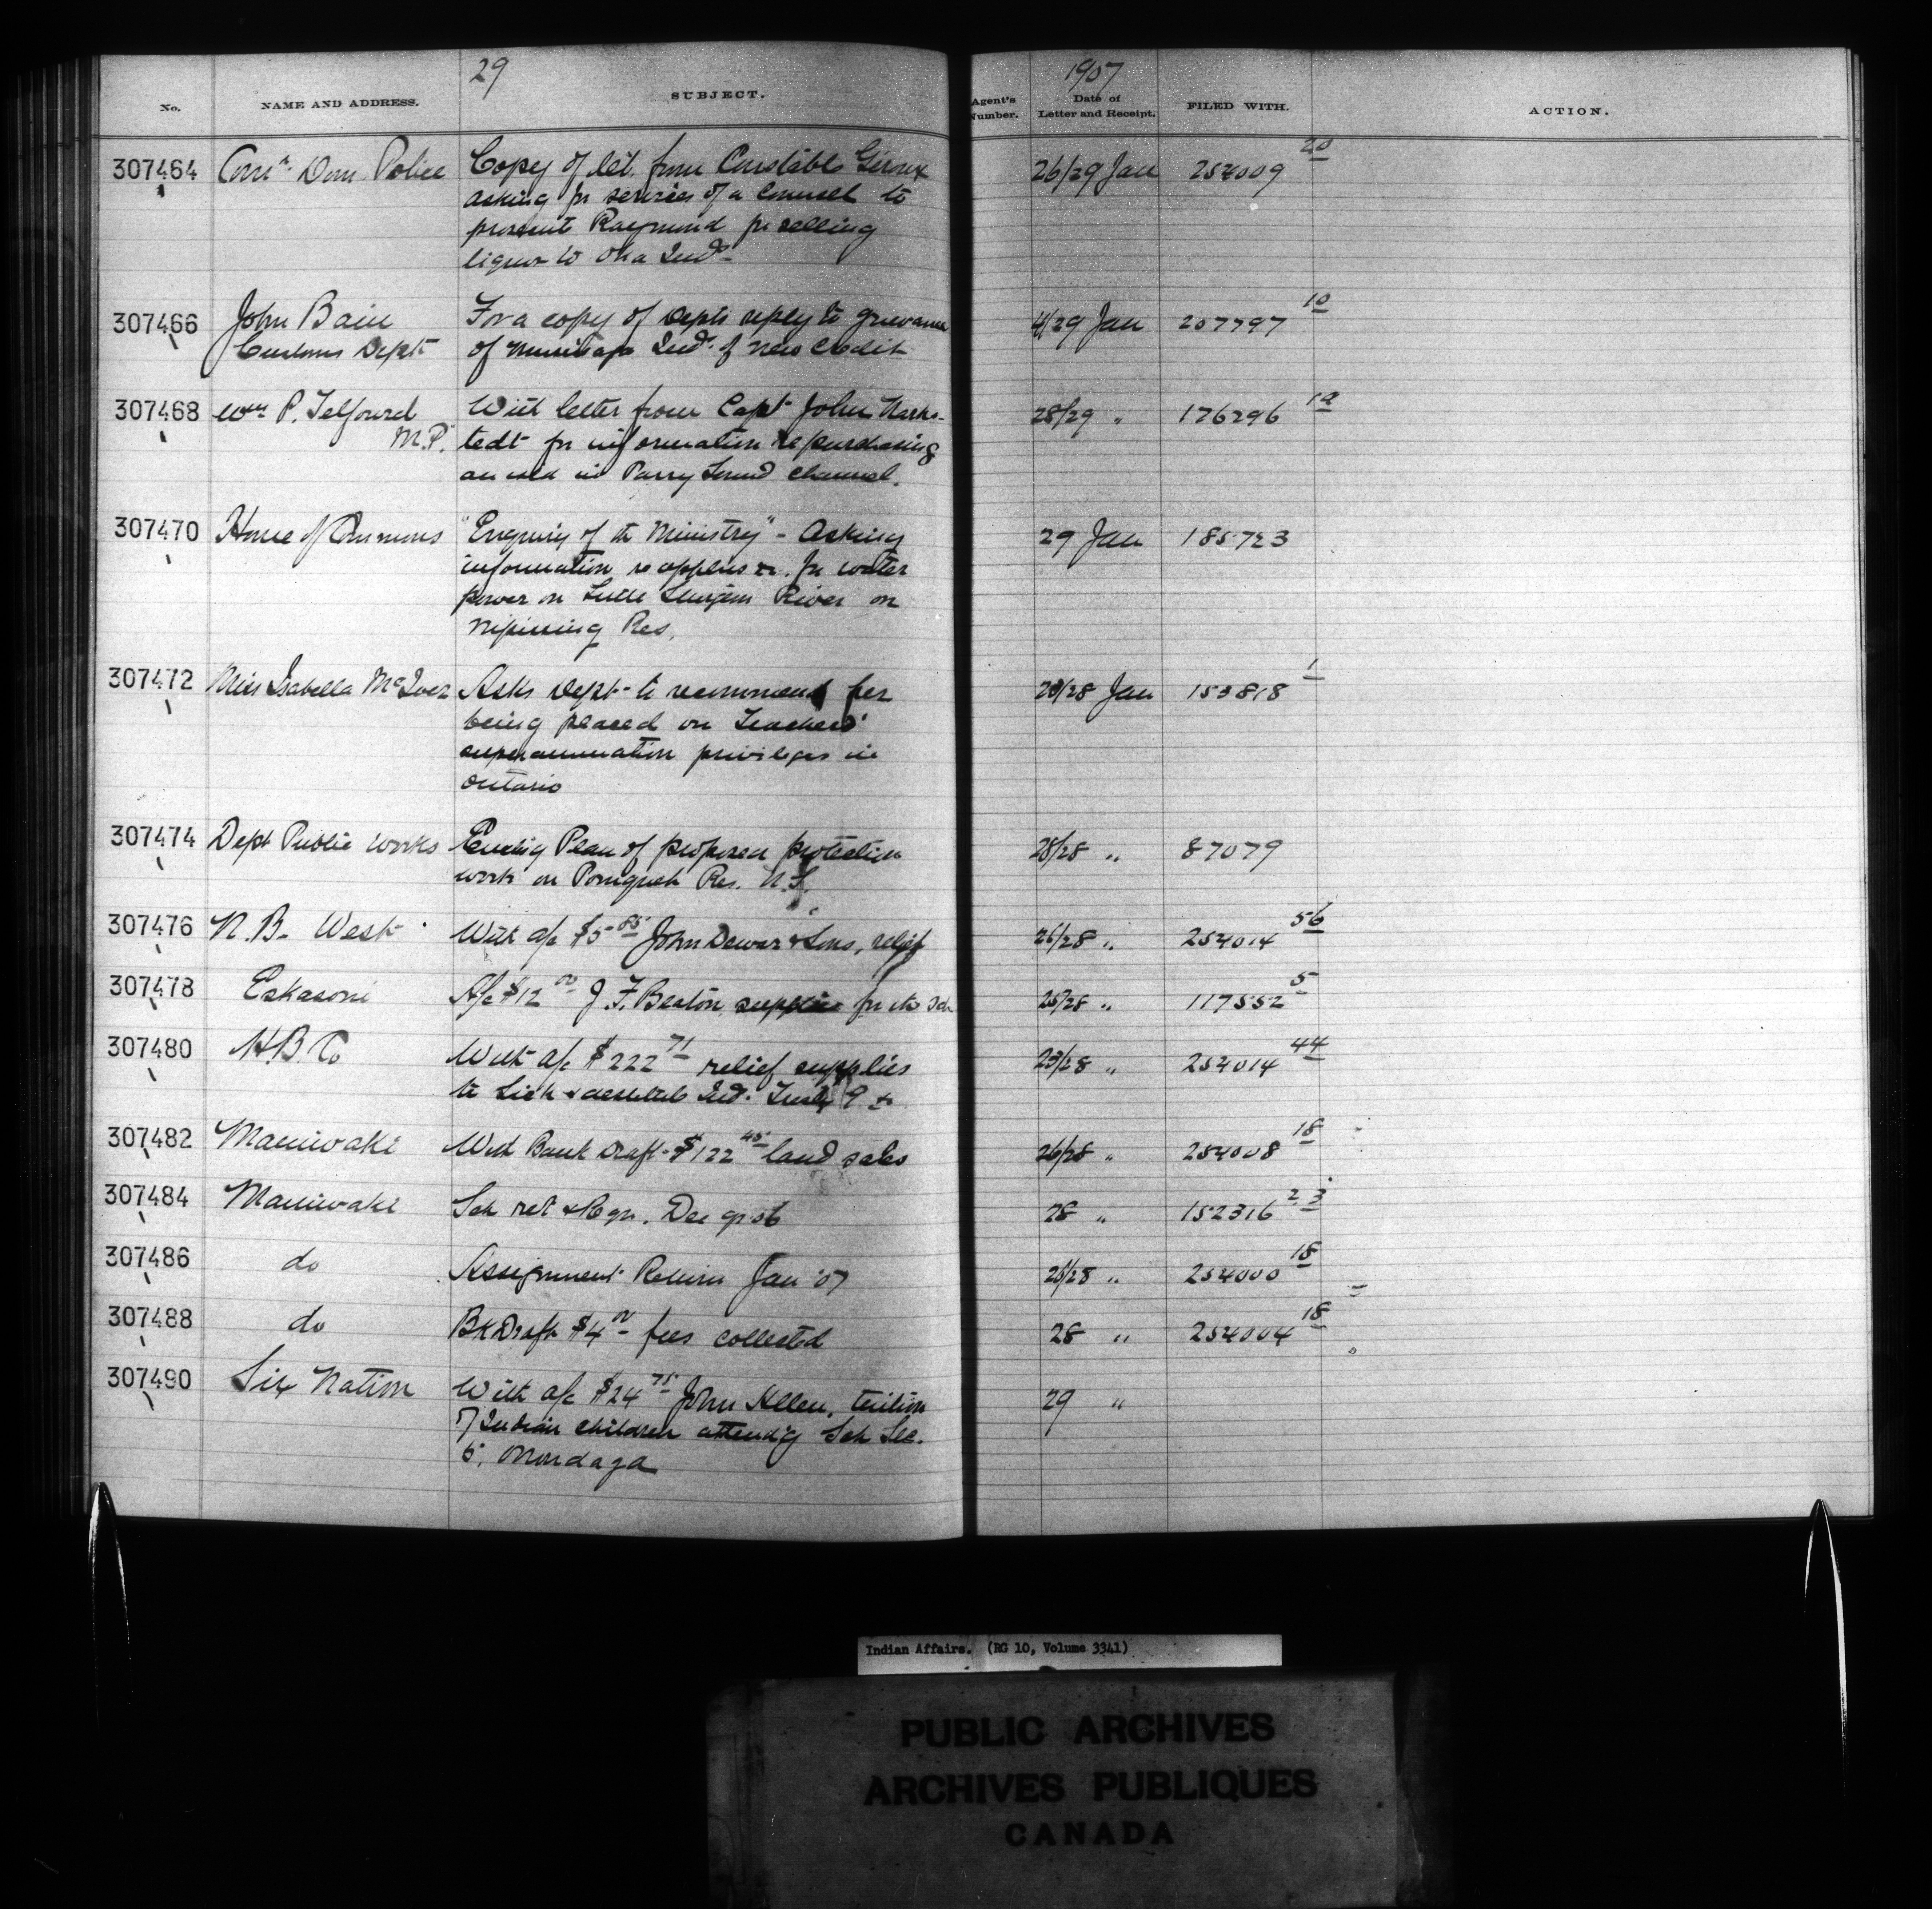 29
1907
No. NAME AND ADDRESS. SUBJECT. Agent's Number. Date of Letter and Receipt. FILED WITH. ACTION.
307464 Comr. Dom. Police Copy of let. from Constable Giroux 26/29 Jan 254009 20
asking for services of a Counsel to
prosecute Raymond for selling
liquor to Oka Inds
307466 John Bain For a copy of Depts reply to grievance 4/29 Jan 207797 10
Customs Dept of Mississaga Inds. of New Credit
307468 Wm P. Telfourd With letter from Capt John Hark- 28/29 " 176296
M.P. tedt for information re purchasing
an isld in Parry Sound Channel.
307470 House of Commons "Enquiry of the Ministry" - Asking 29 Jan 185723
information re applns &c. for water
power on Little Sturgeon River on
Nipissing Res.
307472 Miss Isabella McIver Asks Dept to recommend her /28 Jan 153818 1
being placed on Teachers'
superannuation privileges in
Ontario
307474 Dept Public Works Plan of proposed protection 28/28 " 87079
work on Pomquet Res. N.S.
307476 N.B. West With a/c $5 85 John Dewar & Sons, relief 26/28 " 254014 56
307478 Eskasoni A/c $12 00 J. F. Beaton supplies for its Sch 25/28 " 117552 5
307480 H.B. Co With a/c $222 71 relief supplies 23/28 " 254014 44
to Sick & destitute Inds. Treaty 9 &
307482 Maniwaki With Bank Draft $122 45 land sales 26/28 " 254008 18
307484 Maniwaki Sch ret & Regr. Dec qr 06 28 " 152316 2 3
307486 do Assignment Return Jan '07 26/28 " 254000 18
307488 do Bk Draft $4 00 fees collected 28 " 254004 18
307490 Six Nation With a/c $24 75 John Allen, tuition 29 "
of Indian children attend'g Sch Sec.
Onondaga
Indian Affairs. (RG 10, Volume 3341)
PUBLIC ARCHIVES
ARCHIVES PUBLIQUES
CANADA